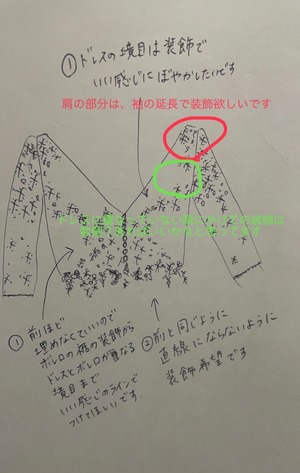 ①ドレスの境目は装飾で
いい感じにぼやかしたいです
肩の部分は、袖の延長で装飾欲しいです
① 前ほど
埋めなくていいので
ボレロの袖の装飾から
ドレスとボレロが重なる
境目まで
いい感じのラインで
つけてほしいです。
② 前と同じように
直線にならないように
装飾希望です